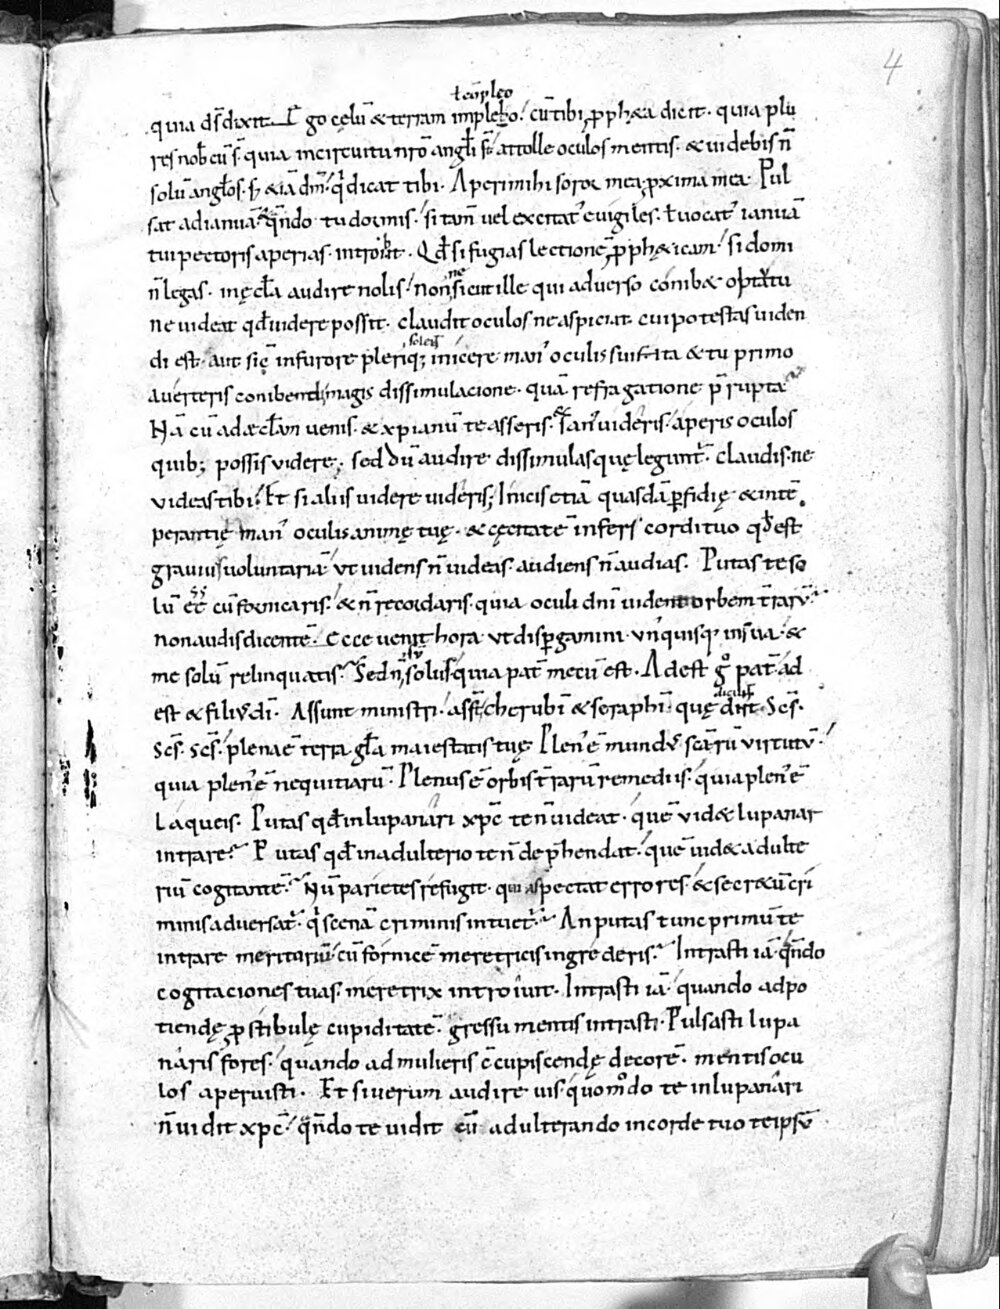 4
ł cōpleo
quia d̄s dixit. Ego cęlū & terram implebo. cū tibi ꝓph&a dicit. quia plu
res nob̄ cū s̄. quia in circuitu nr̄o angłi s̄t. attolle oculos mentis. & uidebis n̄
solū angłos. s; & iā dn̄m. q̇ dicat tibi. Aperi mihi soror mea ꝓxima mea. Pul
sat ad ianuā. & qn̄do tu dormis. si tam̄ uel excitat' euigiles. ł uocat' ianuā
tui pectoris aperias. introibit. Qd̄ si fugias lectionē ꝓph&icam. si domi
n̄ legas. in ęcła audire nolis. nonne sicut ille qui aduerso conib& optutu
ne uideat qd̄ uidere possit. claudit oculos ne aspiciat. cui potestas uiden
di est. aut sic̄ in furore pleriq; solent inicere man' oculis suis. ita & tu primo
auerteris conibendi magis dissimulacione. quā refragatione p̄rupta
Nā cū ad ęcłam uenis. & xp̄ianū te asseris. & san' uideris. aperis oculos
quib; possis uidere. sed dū audire dissimulas quę legunt̄. claudis. ne
uideas tibi. Et si aliis uidere uideris. Inicis etiā quasdā ꝑfidię & intē
perantię man' oculis animę tuę. & cęcitatē infers cordi tuo qd̄ est
grauius uoluntariā. ut uidens n̄ uideas. audiens n̄ audias. Putas te so
lū ēē cū fornicaris. & n̄ recordaris. quia oculi dn̄i uident orbem t̄rarū.
non audis dicentē. Ecce uenit hora ut disꝑgamini. un'quisq; in sua. &
me solū relinquatis. Sed n̄ sū solus. quia pat̄ mecū est. Adest gͦ pat̄. ad
est & filius dī. Assunt ministri. ass̄t cherubī & seraphī. quę dicunt. Sc̄s.
Sc̄s. Sc̄s. plena ē terra gła maiestatis tuę. Plen' ē mund' sc̄arū uirtutū.
quia plen' ē nequitiarū. Plenus ē orbis t̄rarū remediis. quia plen' ē
laqueis. Putas qd̄ in lupanari xp̄c te n̄ uideat. quē uid& lupanar
intrare. Putas qd̄ in adulterio te n̄ dep̄hendat. quē uid& adulte
riū cogitantē. Nū parietes refugit. qui aspectat errores. & secr&ū cri
minis aduersat̄. q̇ scenā criminis intuet̄. An putas tunc primū te
intrare meritoriū. cū fornicē meretricis ingrederis. Intrasti iā. qn̄do
cogitaciones tuas. meretrix introiuit. Intrasti iā. quando ad po
tiendę ꝓstibulę cupiditatē. gressu mentis intrasti. Pulsasti lupa
naris fores. quando ad mulieris c̄cupiscendę decorē. mentis ocu
los aperuisti. Et si uerum audire uis. quomodo te in lupanari
n̄ uidit xp̄c. qn̄do te uidit cū adulterando in corde tuo te ipsū